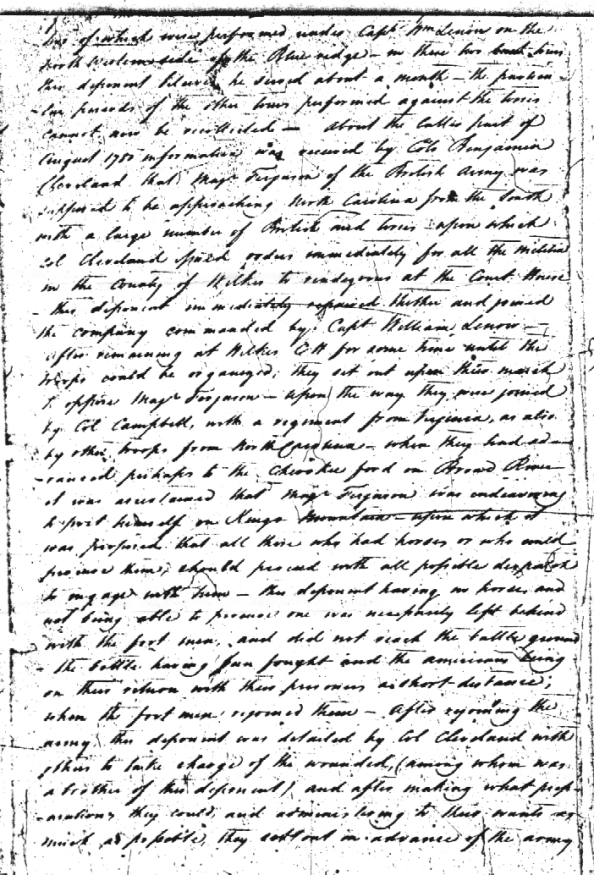 two of which were performed under Capt Wm Lenoir on the
North Western side of the Blue ridge – in these two
this deponent believes he served about a month – the particu-
-lar periods of the other tours performed against the tories
cannot now be recollected – about the latter part of
August 1780 information was received by Colo Benjamin
Cleveland that Majr Ferguson of the British Army was
supposed to be approaching North Carolina from the South
with a large number of British and tories upon which
Col Cleveland issued orders immediately for all the militia
in the County of Wilkes to rendezvous at the Court House
– this deponent immediately repaired thither and joined
the company commanded by Capt William Lenoir –
after remaining at Wilkes C H for some time until the
troops could be organized; they set out upon their march
to oppose Majr Ferguson – upon the way they were joined
by Col Campbell, with a regiment from Virginia, as also
by other troops from North Carolina – when they had ad-
-vanced perhaps to the Cherokee ford on Broad River
it was ascertained that Majr Ferguson was endeavoring
to post himself on Kings Mountain – upon which it
was proposed that all those who had horses or who could
procure them, should proceed with all possible despatch
to engage with him – this deponent having no horse and
not being able to procure one was necessarily left behind
with the foot men, and did not reach the battle ground
– the battle having been fought and the americans being
on their return with their prisoners a short distance;
when the foot men rejoined them – After rejoining the
army, this deponent was detailed by Col Cleveland with
others to take charge of the wounded, (among whom was
a brother of this deponent) and after making what prep-
-arations they could, and administering to their wants as
much as possible, they set out in advance of the army